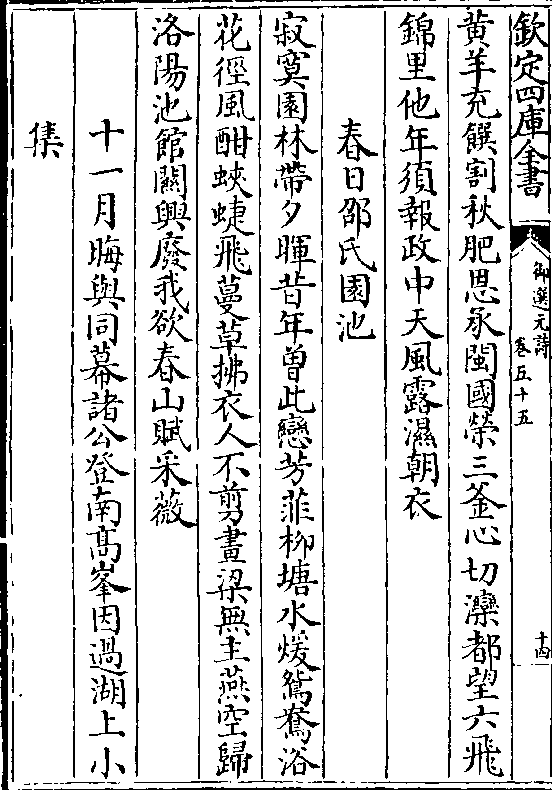 欽定四庫全書
御選元詩
卷五十五
十四
黄羊充饌割秋肥恩承閩國榮三釜心切灤都望六飛
錦里他年須報政中天風露濕朝衣
春日邵氏園池
寂寞園林帶夕暉昔年曽此戀芳菲柳塘水煖鴛鴦浴
花徑風酣蛺蜨飛蔓草拂衣人不剪畫梁無主燕空歸
洛陽池館關興廢我欲春山賦采薇
十一月晦與同幕諸公登南髙峯因過湖上小
集